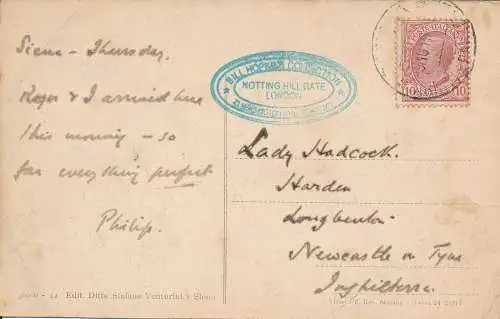 Siena - Thursday.
Roger & I arrived here
this morning - so
far everything perfect
Philip.
BILL HOPKINS COLLECTION
NOTTING HILL GATE
LONDON
10 10
Lady Hadcock.
Harden
Longbenton
Newcastle on Tyne
Inghilterra.
Edit. Ditta Stefano Venturini, Siena